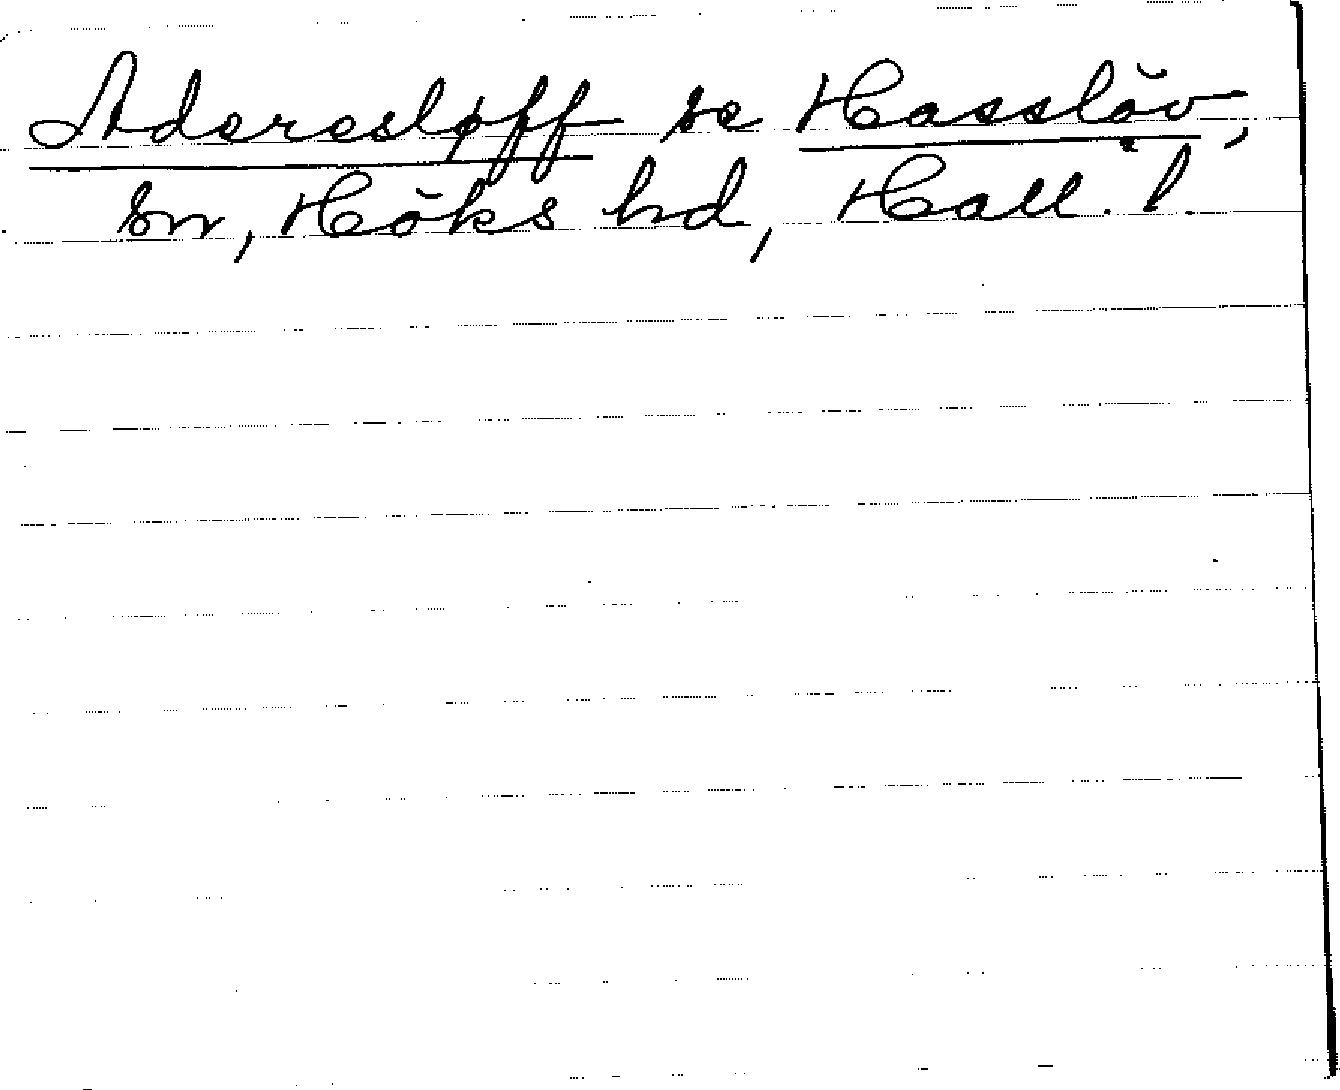 Adersløff se Hasslöv,
sn, Höks hd, Hall. l.